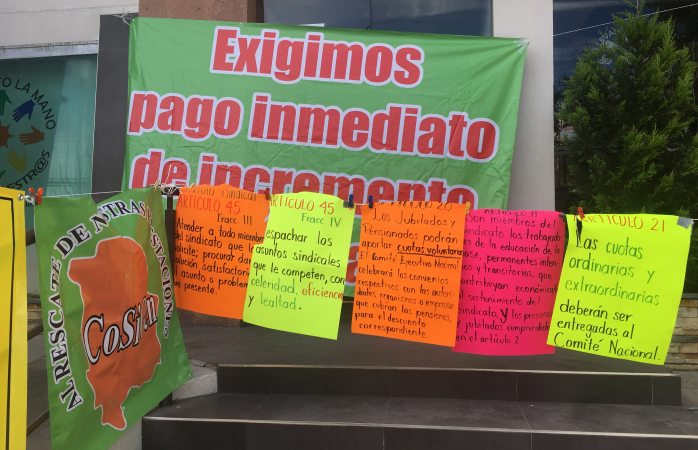 Exigimos
pago inmediato
de incremento
LA MANO
AL RESCATE DE NUESTRAS
CoSi
ARTÍCULO 45
Fracc III
Atender a todo miembro
del sindicato que lo
solicite; procurar dar
solución satisfactoria
al asunto o problema
que presente.
ARTÍCULO 45
Fracc IV
espachar los
asuntos sindicales
que le competen, con
celeridad, eficiencia
y lealtad.
Los Jubilados y
Pensionados podrán
aportar cuotas voluntarias
El Comité Ejecutivo Nacional
celebrará los convenios
respectivos con las autori-
dades, organismos o empresas
que cubran las pensiones,
para el descuento
correspondiente
Son miembros del
sindicato los Trabajado
de la educación de la
base, permanentes, interi-
y transitorios, que
contribuyan económica
al sostenimiento del
sindicato, y los pensiona
y jubilados comprendidos
en el artículo 2.
ARTÍCULO 21
Las cuotas
ordinarias y
extraordinarias
deberán ser
entregadas al
Comité Nacional.